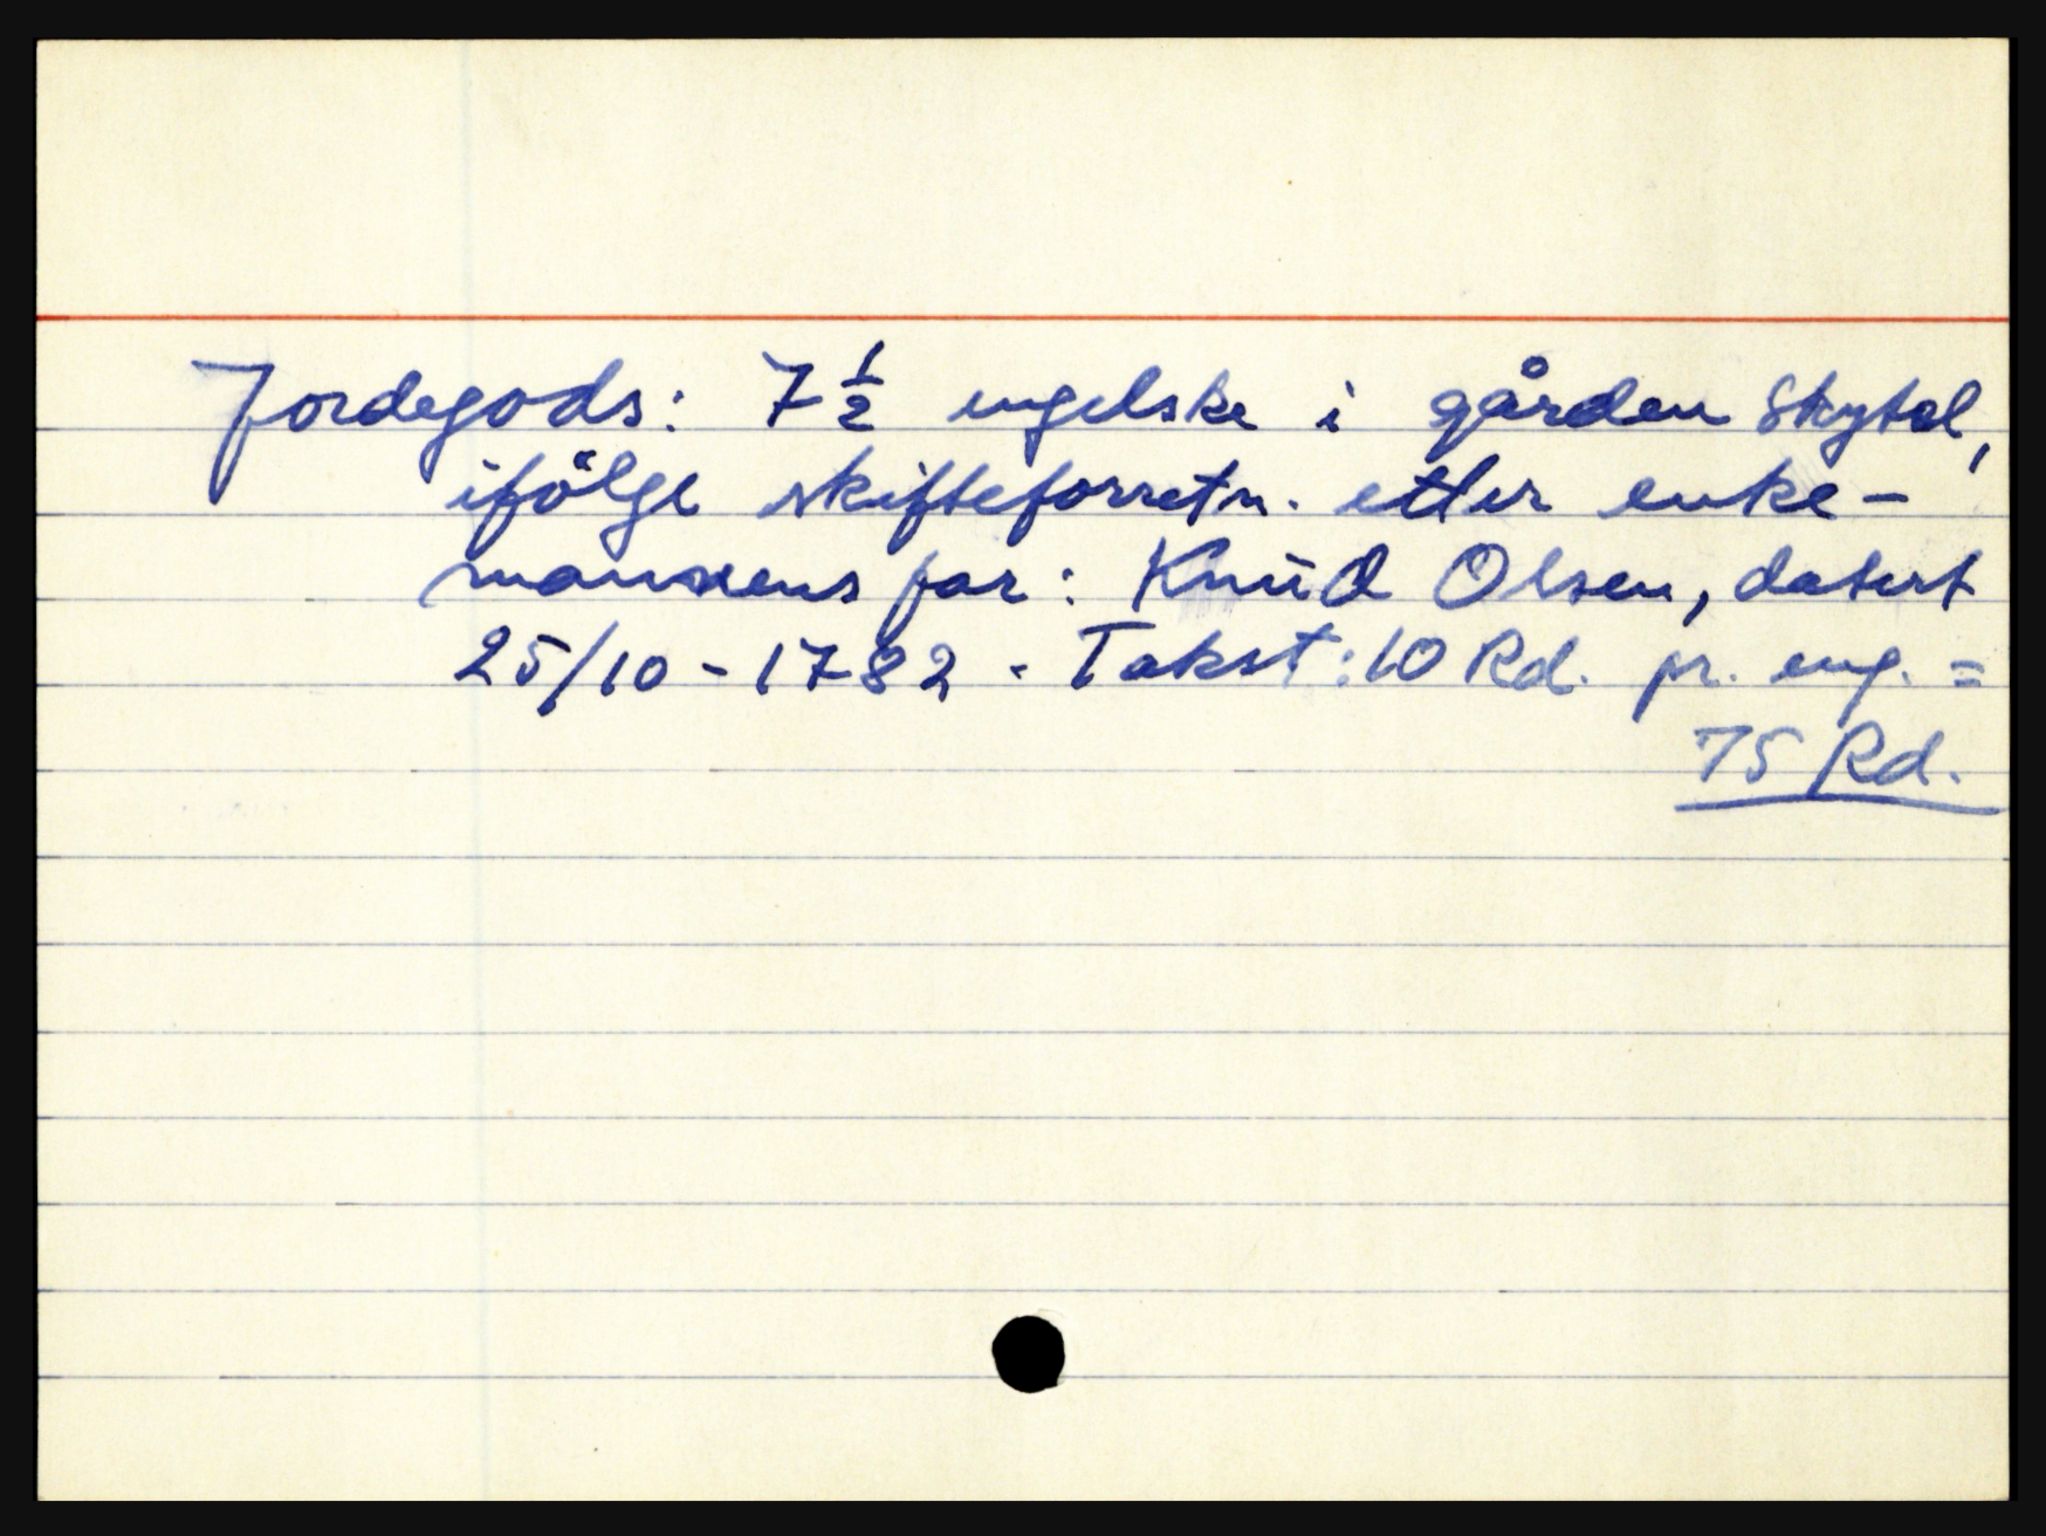 Jordegods: 7 ½ engelske i gården Skytel,
ifölge skifteforretn. etter enke-
mannens far: Knud Olsen, datert
25/10 - 1782. Takst: 10 Rd. pr. eng. =
75 Rd.